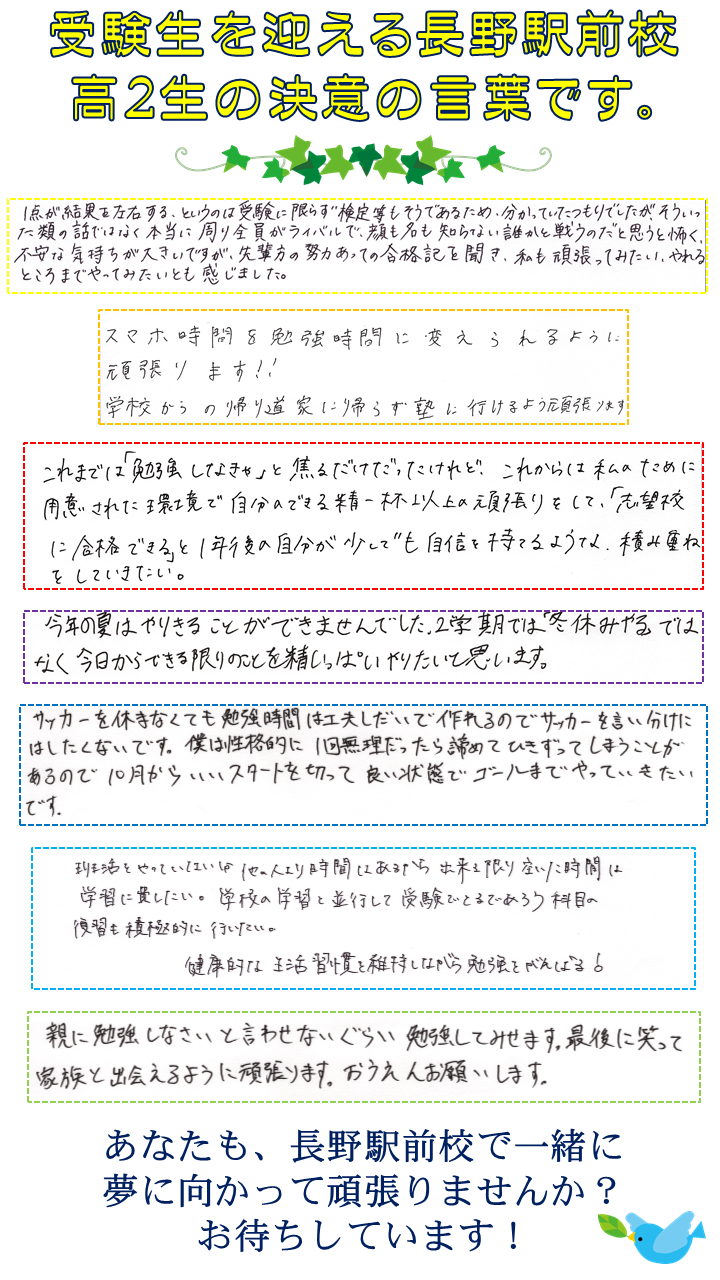 受験生を迎える長野駅前校
高2生の決意の言葉です。
1点が結果を左右する、というのは受験に限らず検定等もそうであるため、分かっていたつもりでしたが、そういっ
た類の話ではなく本当に周り全員がライバルで、顔も名も知らない誰かと戦うのだと思うと怖く、
不安な気持ちが大きいですが、先輩方の努力あっての合格記を聞き、私も頑張ってみたい、やれる
ところまでやってみたいとも感じました。
スマホ時間を勉強時間に変えられるように
頑張ります!!
学校からの帰り道家に帰らず塾に行けるよう頑張ります
これまでは「勉強しなきゃ」と焦るだけだったけれど、これからは私のために
用意された環境で自分のできる精一杯以上の頑張りをして、「志望校
に合格できる」と1年後の自分が少しでも自信を持てるような、積み重ね
をしていきたい。
今年の夏はやりきることができませんでした。2学期では「冬休みやる」では
なく今日からできる限りのことを精いっぱいやりたいと思います。
サッカーを休まなくても勉強時間は工夫しだいで作れるのでサッカーを言い分けに
はしたくないです。僕は性格的に1回無理だったら諦めてひきずってしまうことが
あるので10月からいいスタートを切って良い状態でゴールまでやっていきたい
です。
活をやっていない 他の人より時間はあるから出来る限り空いた時間は
学習に費したい。学校の学習と並行して受験でとるであろう科目の
復習も積極的に行いたい。
健康的な生活習慣を維持しながら勉強をがんばる!
親に勉強しなさいと言わせないぐらい勉強してみせます。最後に笑って
家族と出会えるように頑張ります。おうえんお願いします。
あなたも、長野駅前校で一緒に
夢に向かって頑張りませんか?
お待ちしています!